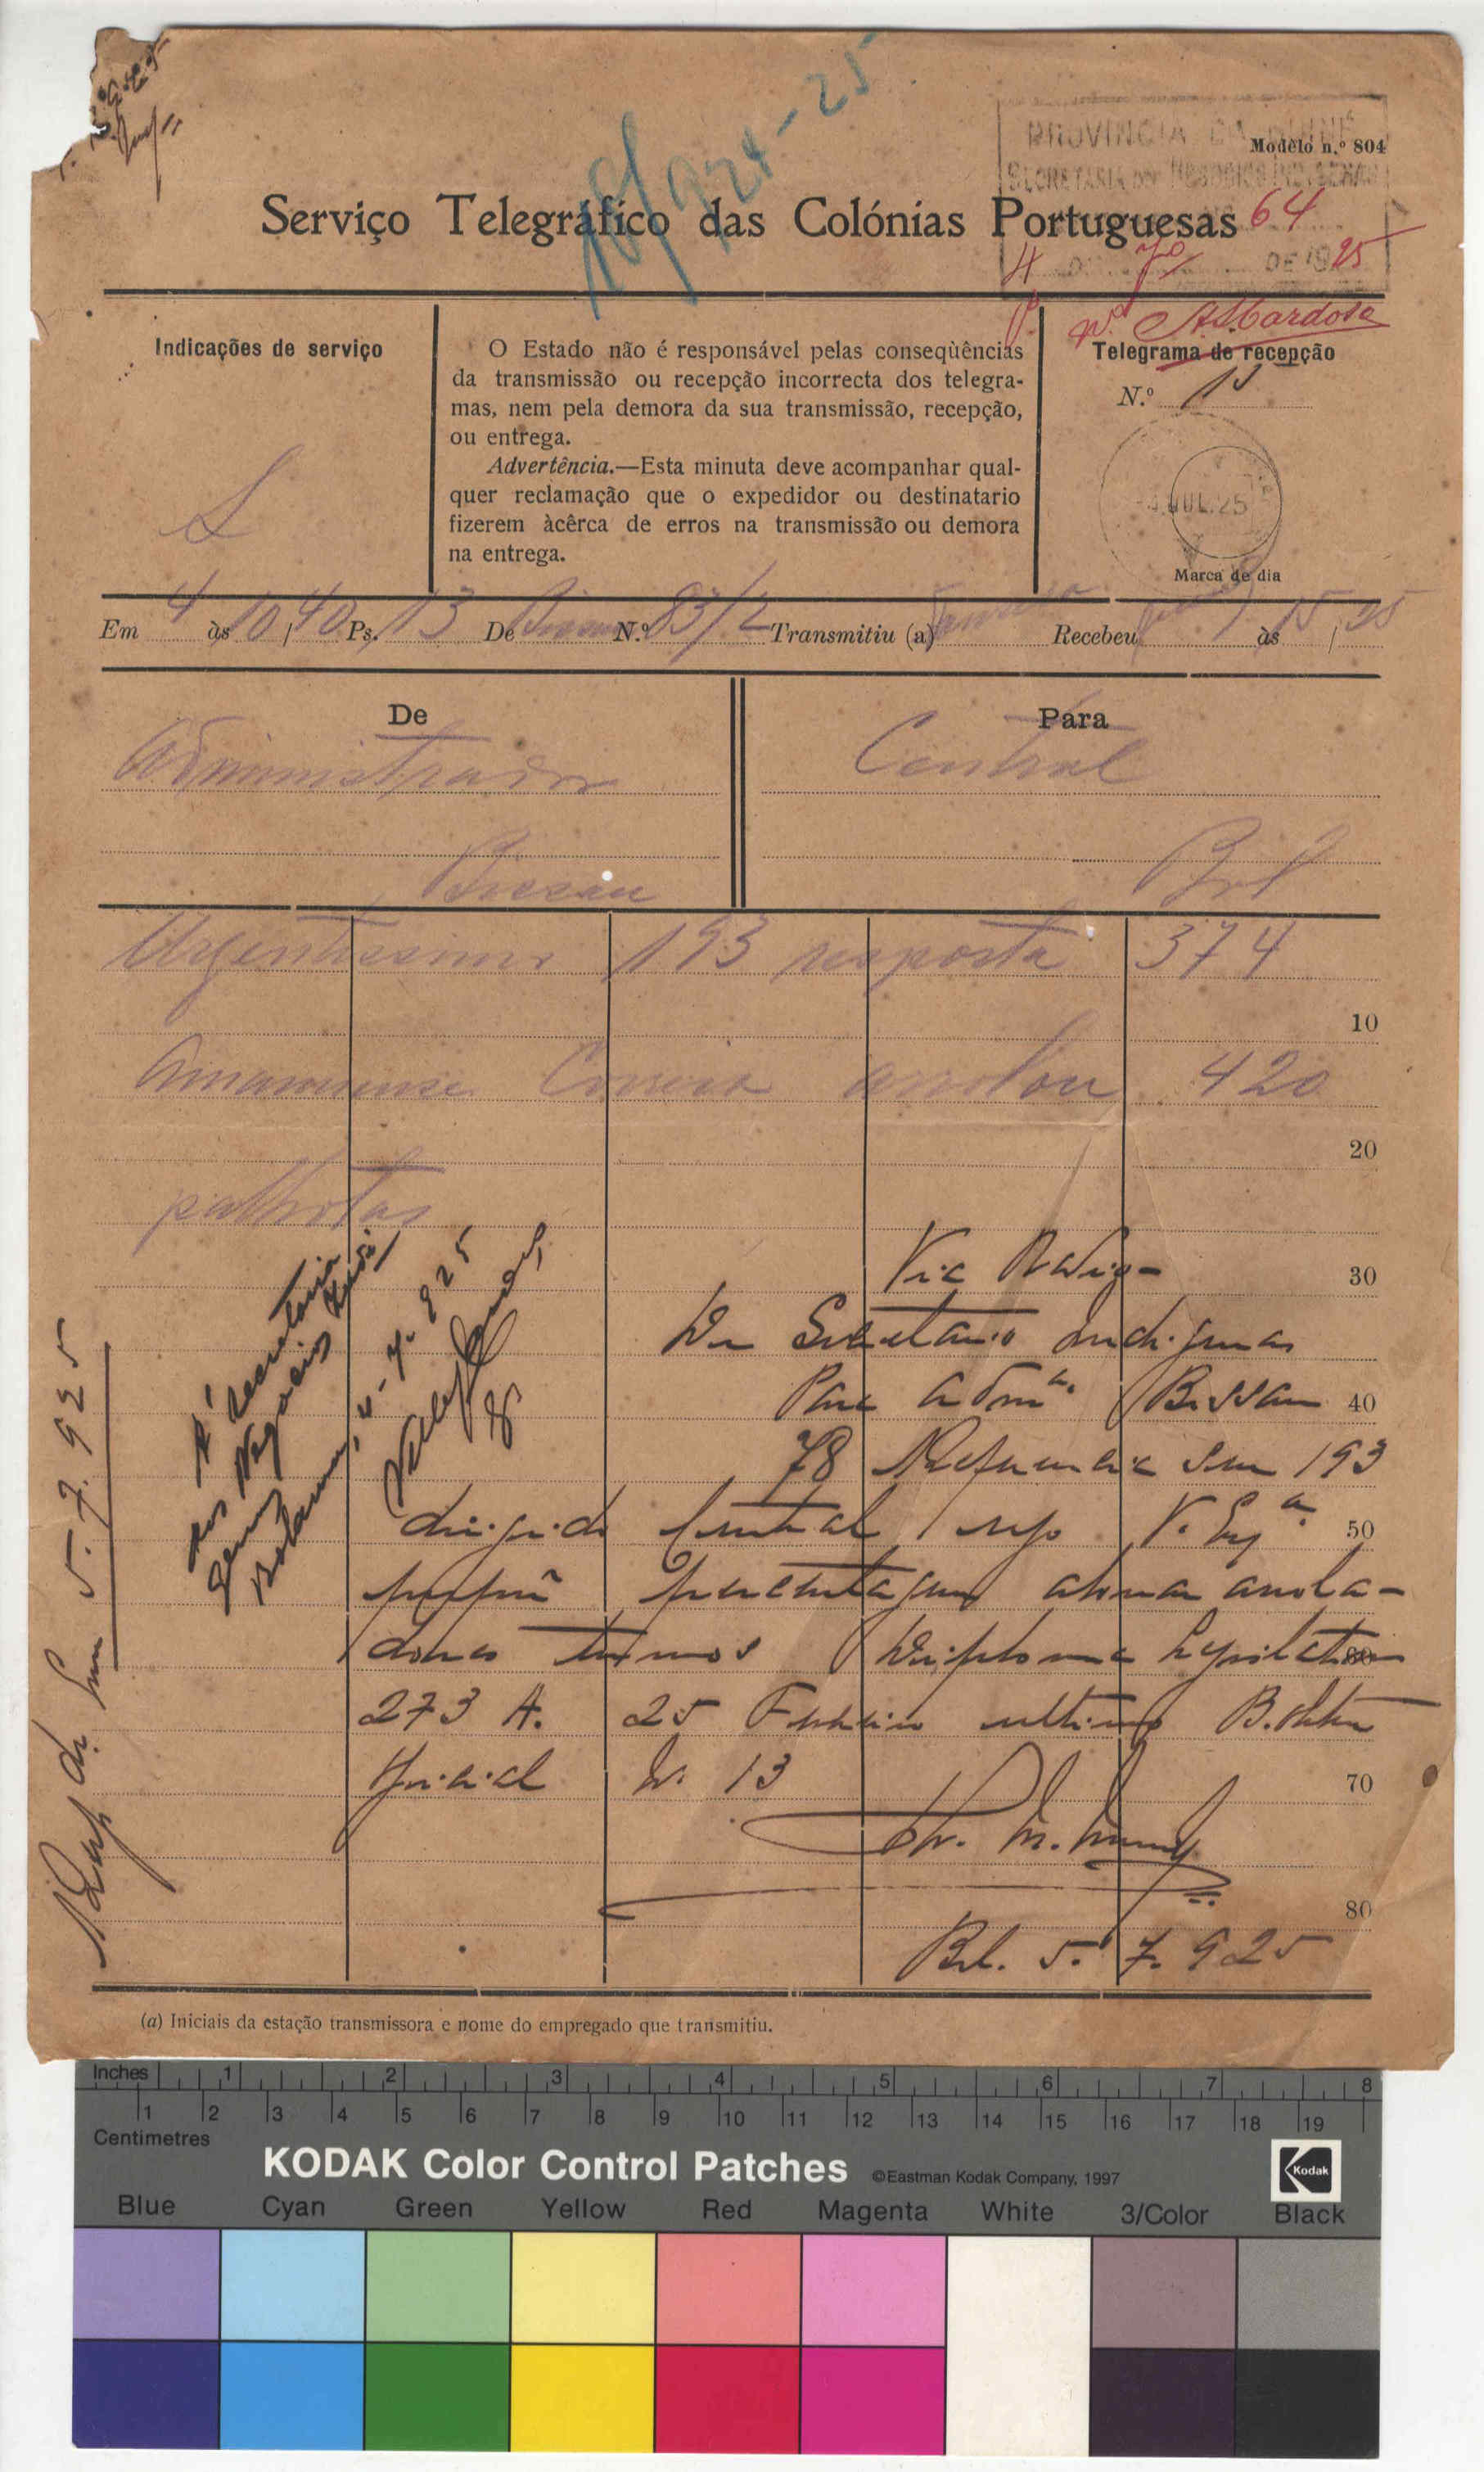 Modêlo n.º 804
PROVINCIA DA GUINÉ
SECRETARIA DOS NEGOCIOS INDIGENAS
Serviço Telegráfico das Colónias Portuguesas
64
4 DE 7º DE 1925
A. S. Cardoso
Indicações de serviço
O Estado não é responsável pelas conseqùências
da transmissão ou recepção incorrecta dos telegra-
mas, nem pela demora da sua transmissão, recepção,
ou entrega.
Advertência.—Esta minuta deve acompanhar qual-
quer reclamação que o expedidor ou destinatario
fizerem àcêrca de erros na transmissão ou demora
na entrega.
Telegrama de recepção
N.º
4 JUL. 25
Marca de dia
Em 4 às 10/40 Ps. 13 De Bissau N.º 83/2 Transmitiu (a) Recebeu às 15/25
De
Administrador
Bissau
Para
Central
Bol
Urgentissimo 193 resposta 374
10
Amanuense Correia arrolou 420
20
palhotas
30
Via Radio
De Secretario Indigenas
Para Adm.or Bissau 40
78 Referencia seu 193
dirigido Central rogo V. Exª. 50
percentagem abonar arrola-
dores termos Diploma Legislativo 60
273 A. 25 Fevereiro ultimo Boletim
Oficial N. 13 70
80
Bol. 5. 7. 925
Á Secretaria
dos Negocios Indi
genas
Bolama, 4-7-925
5. 7. 925
(a) Iniciais da estação transmissora e nome do empregado que transmitiu.
Inches 1 2 3 4 5 6 7 8
1 2 3 4 5 6 7 8 9 10 11 12 13 14 15 16 17 18 19
Centimetres
KODAK Color Control Patches ©Eastman Kodak Company, 1997 Kodak
Blue Cyan Green Yellow Red Magenta White 3/Color Black